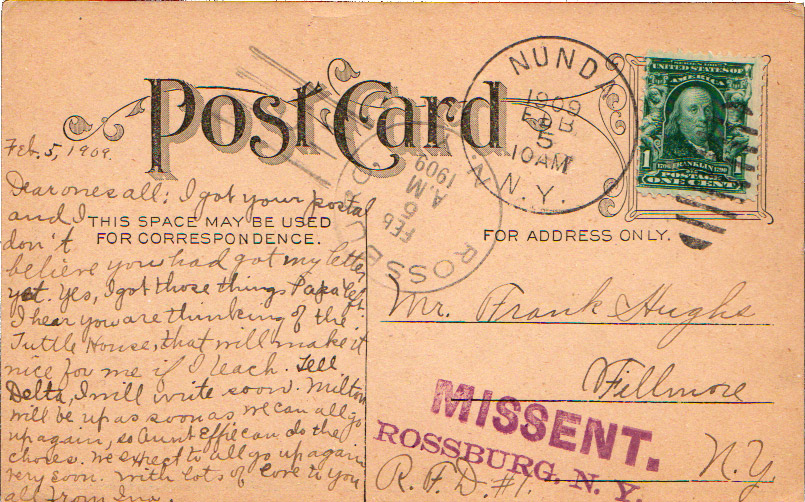 Post Card
NUNDA
1909
FEB
5
10 AM
N.Y.
UNITED STATES OF
AMERICA
1
FRANKLIN
POSTAGE
ONE CENT
ROSSBURG
FEB
6
A.M.
1909
N.
THIS SPACE MAY BE USED
FOR CORRESPONDENCE.
FOR ADDRESS ONLY.
Feb. 5, 1909.
Dear ones all: I got your postal
and I
don't
believe you had got my letter
yet. Yes, I got those things Papa left.
I hear you are thinking of the
Tuttle House, that will make it
nice for me if I teach. Tell
Delta, I will write soon. Milton
will be up as soon as we can all go
up again, so Aunt Effie can do the
chores. We expect to all go up again
very soon. With lots of love to you
all from Ina.
Mr. Frank Hughs
Fillmore
N.Y
R.F.D. #1.
MISSENT.
ROSSBURG, N. Y.